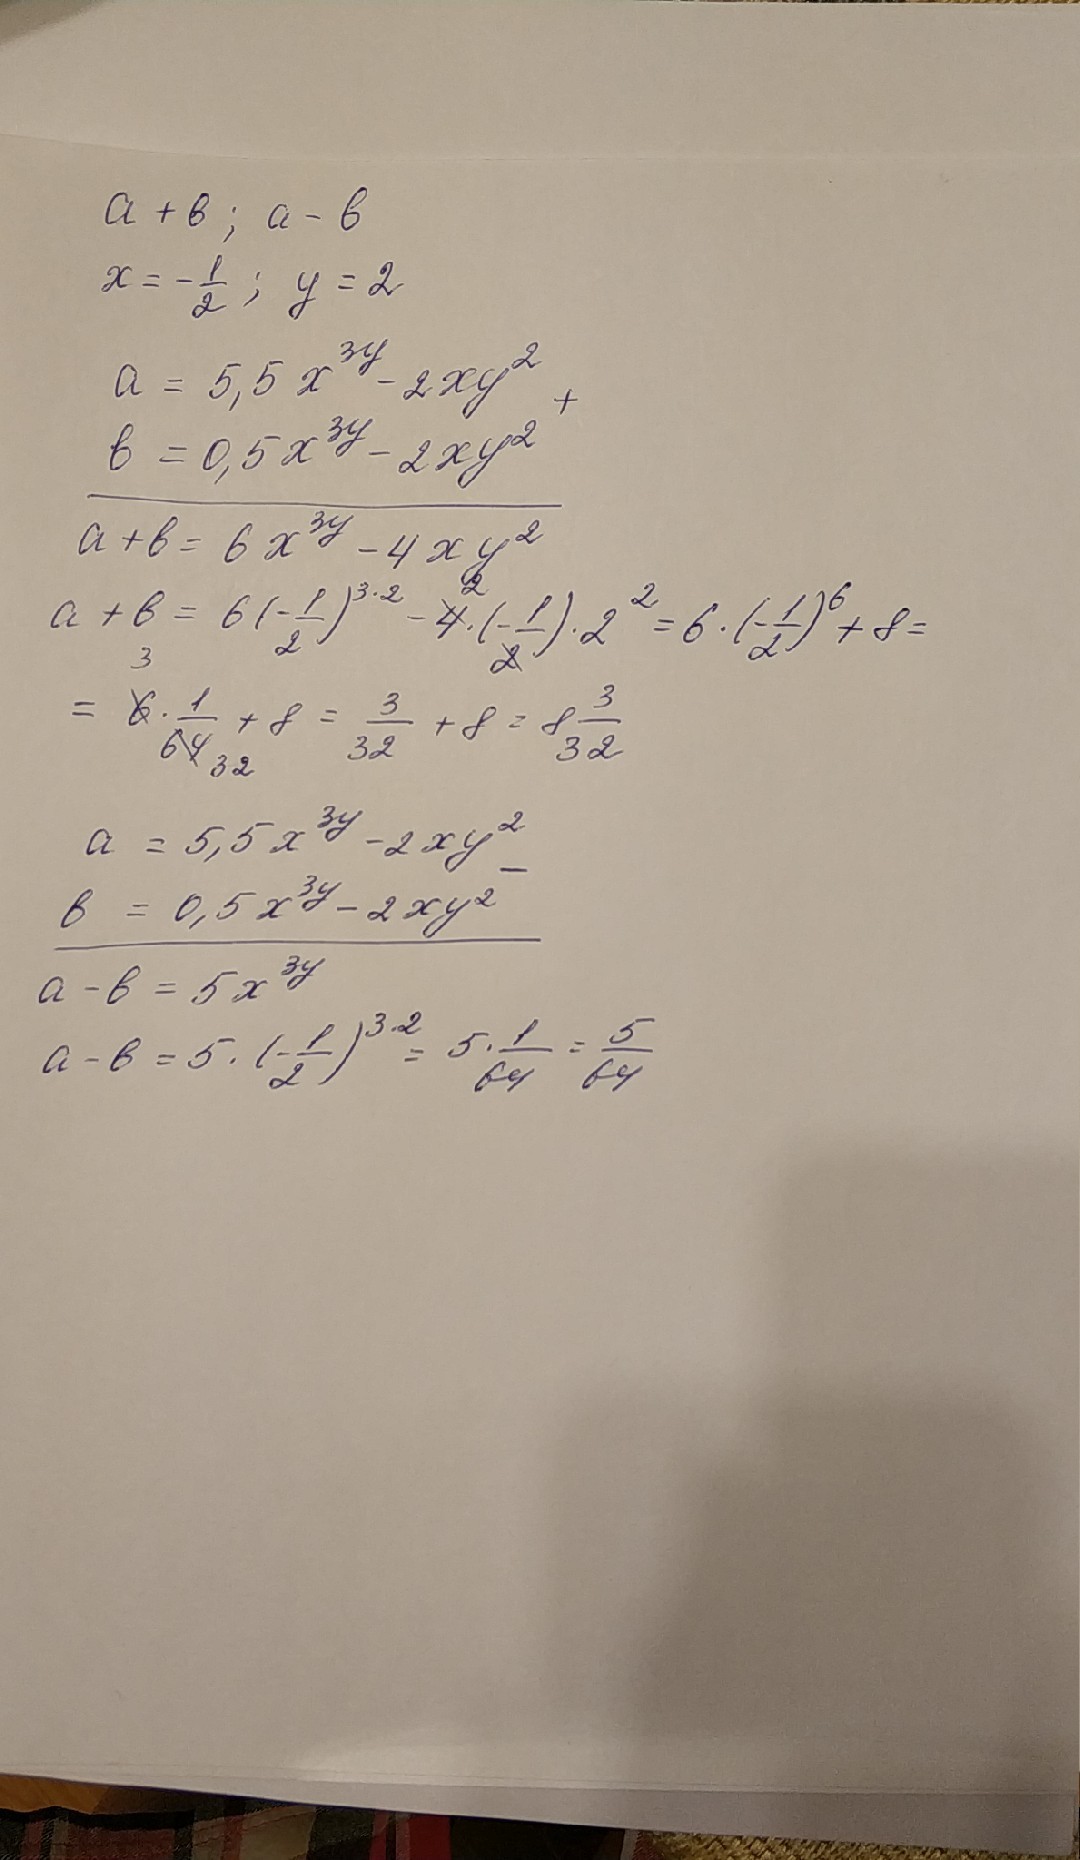 a + в; a - в
x = -1/2; y = 2
a = 5,5x^3y - 2xy^2 +
в = 0,5x^3y - 2xy^2
a + в = 6x^3y - 4xy^2
a + в = 6(-1/2)^3·2 - 4^2·(-1/2)·2^2 = 6·(-1/2)^6 + 8 =
3
= 6·1/64 + 8 = 3/32 + 8 = 8 3/32
32
a = 5,5x^3y - 2xy^2 -
в = 0,5x^3y - 2xy^2
a - в = 5x^3y
a - в = 5·(-1/2)^3·2 = 5·1/64 = 5/64